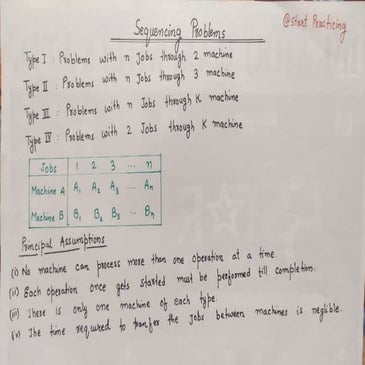 Sequencing Problems
@Start Practicing
Type I : Problems with n Jobs through 2 machine
Type II : Problems with n Jobs through 3 machine
Type III : Problems with n Jobs through K machine
Type IV : Problems with 2 Jobs through K machine
Jobs 1 2 3 ... n
Machine A A₁ A₂ A₃ ... Aₙ
Machine B B₁ B₂ B₃ ... Bₙ
Principal Assumptions
(i) No machine can process more than one operation at a time.
(ii) Each operation once gets started must be performed till completion.
(iii) There is only one machine of each type.
(iv) The time required to transfer the jobs between machines is neglible.